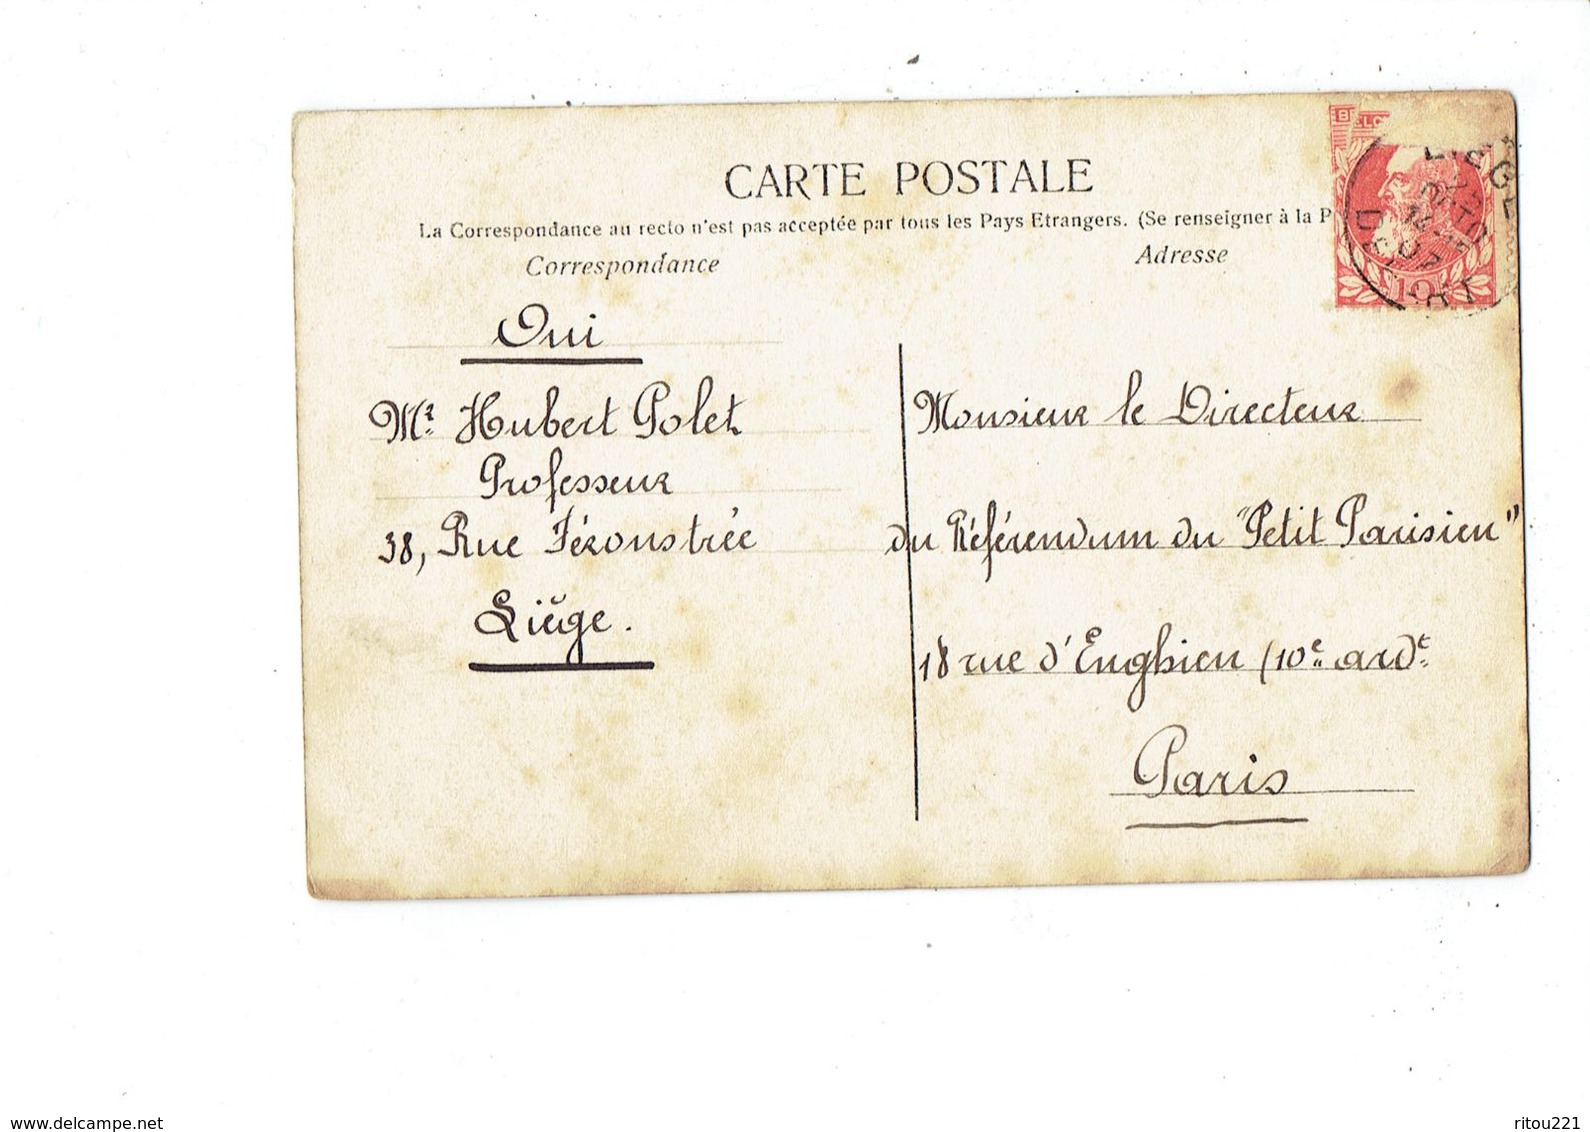 CARTE POSTALE
La Correspondance au recto n'est pas acceptée par tous les Pays Etrangers. (Se renseigner à la P
Correspondance
Adresse
LIEGE
DEPART
10
Oui
Mr Hubert Polet
Professeur
38, Rue Féronstrée
Liége.
Monsieur le Directeur
du Référendum du "Petit Parisien"
18 rue d'Enghien (10e ardt
Paris
www.delcampe.net
ritou221